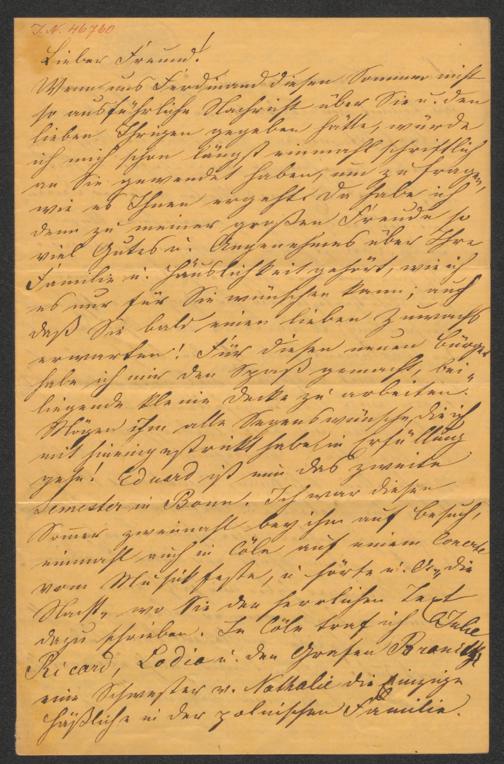 I.N. 46760
Lieber Freund!
Wenn uns Ferdinand diesen Sommer nicht
so ausführliche Nachricht über Sie u. den
lieben Ihrigen gegeben hätte, würde
ich mich schon längst einmahl schriftlich
an Sie gewendet haben, um zu fragen,
wie es Ihnen ergeht. Da habe ich
denn zu meiner großen Freude so
viel Gutes u. Angenehmes über Ihre
Familie u. Häuslichkeit gehört, wie ich
es nur für Sie wünschen kann; auch
daß Sie bald einen lieben Zuwachs
erwarten! Für diesen neuen Bürger
habe ich mir den Spaß gemacht, bei-
liegende kleine Decke zu arbeiten.
Mögen ihm alle Segenswünsche, die ich
mit hineingestrickt habe, in Erfüllung
gehn! Eduard ist nun das zweite
Semester in Bonn. Ich war diesen
Sommer zweimahl bey ihm auf Besuch,
einmahl auch in Cöln auf einem Concerte
vom Musikfeste, u. hörte u. A. die
Nacht, wo Sie den herrlichen Text
dazu schrieben. In Cöln traf ich Julie
Ricard, Lodia u. den Grafen
eine Schwester v. Nathalie die einzige
häßliche in der polnischen Familie.